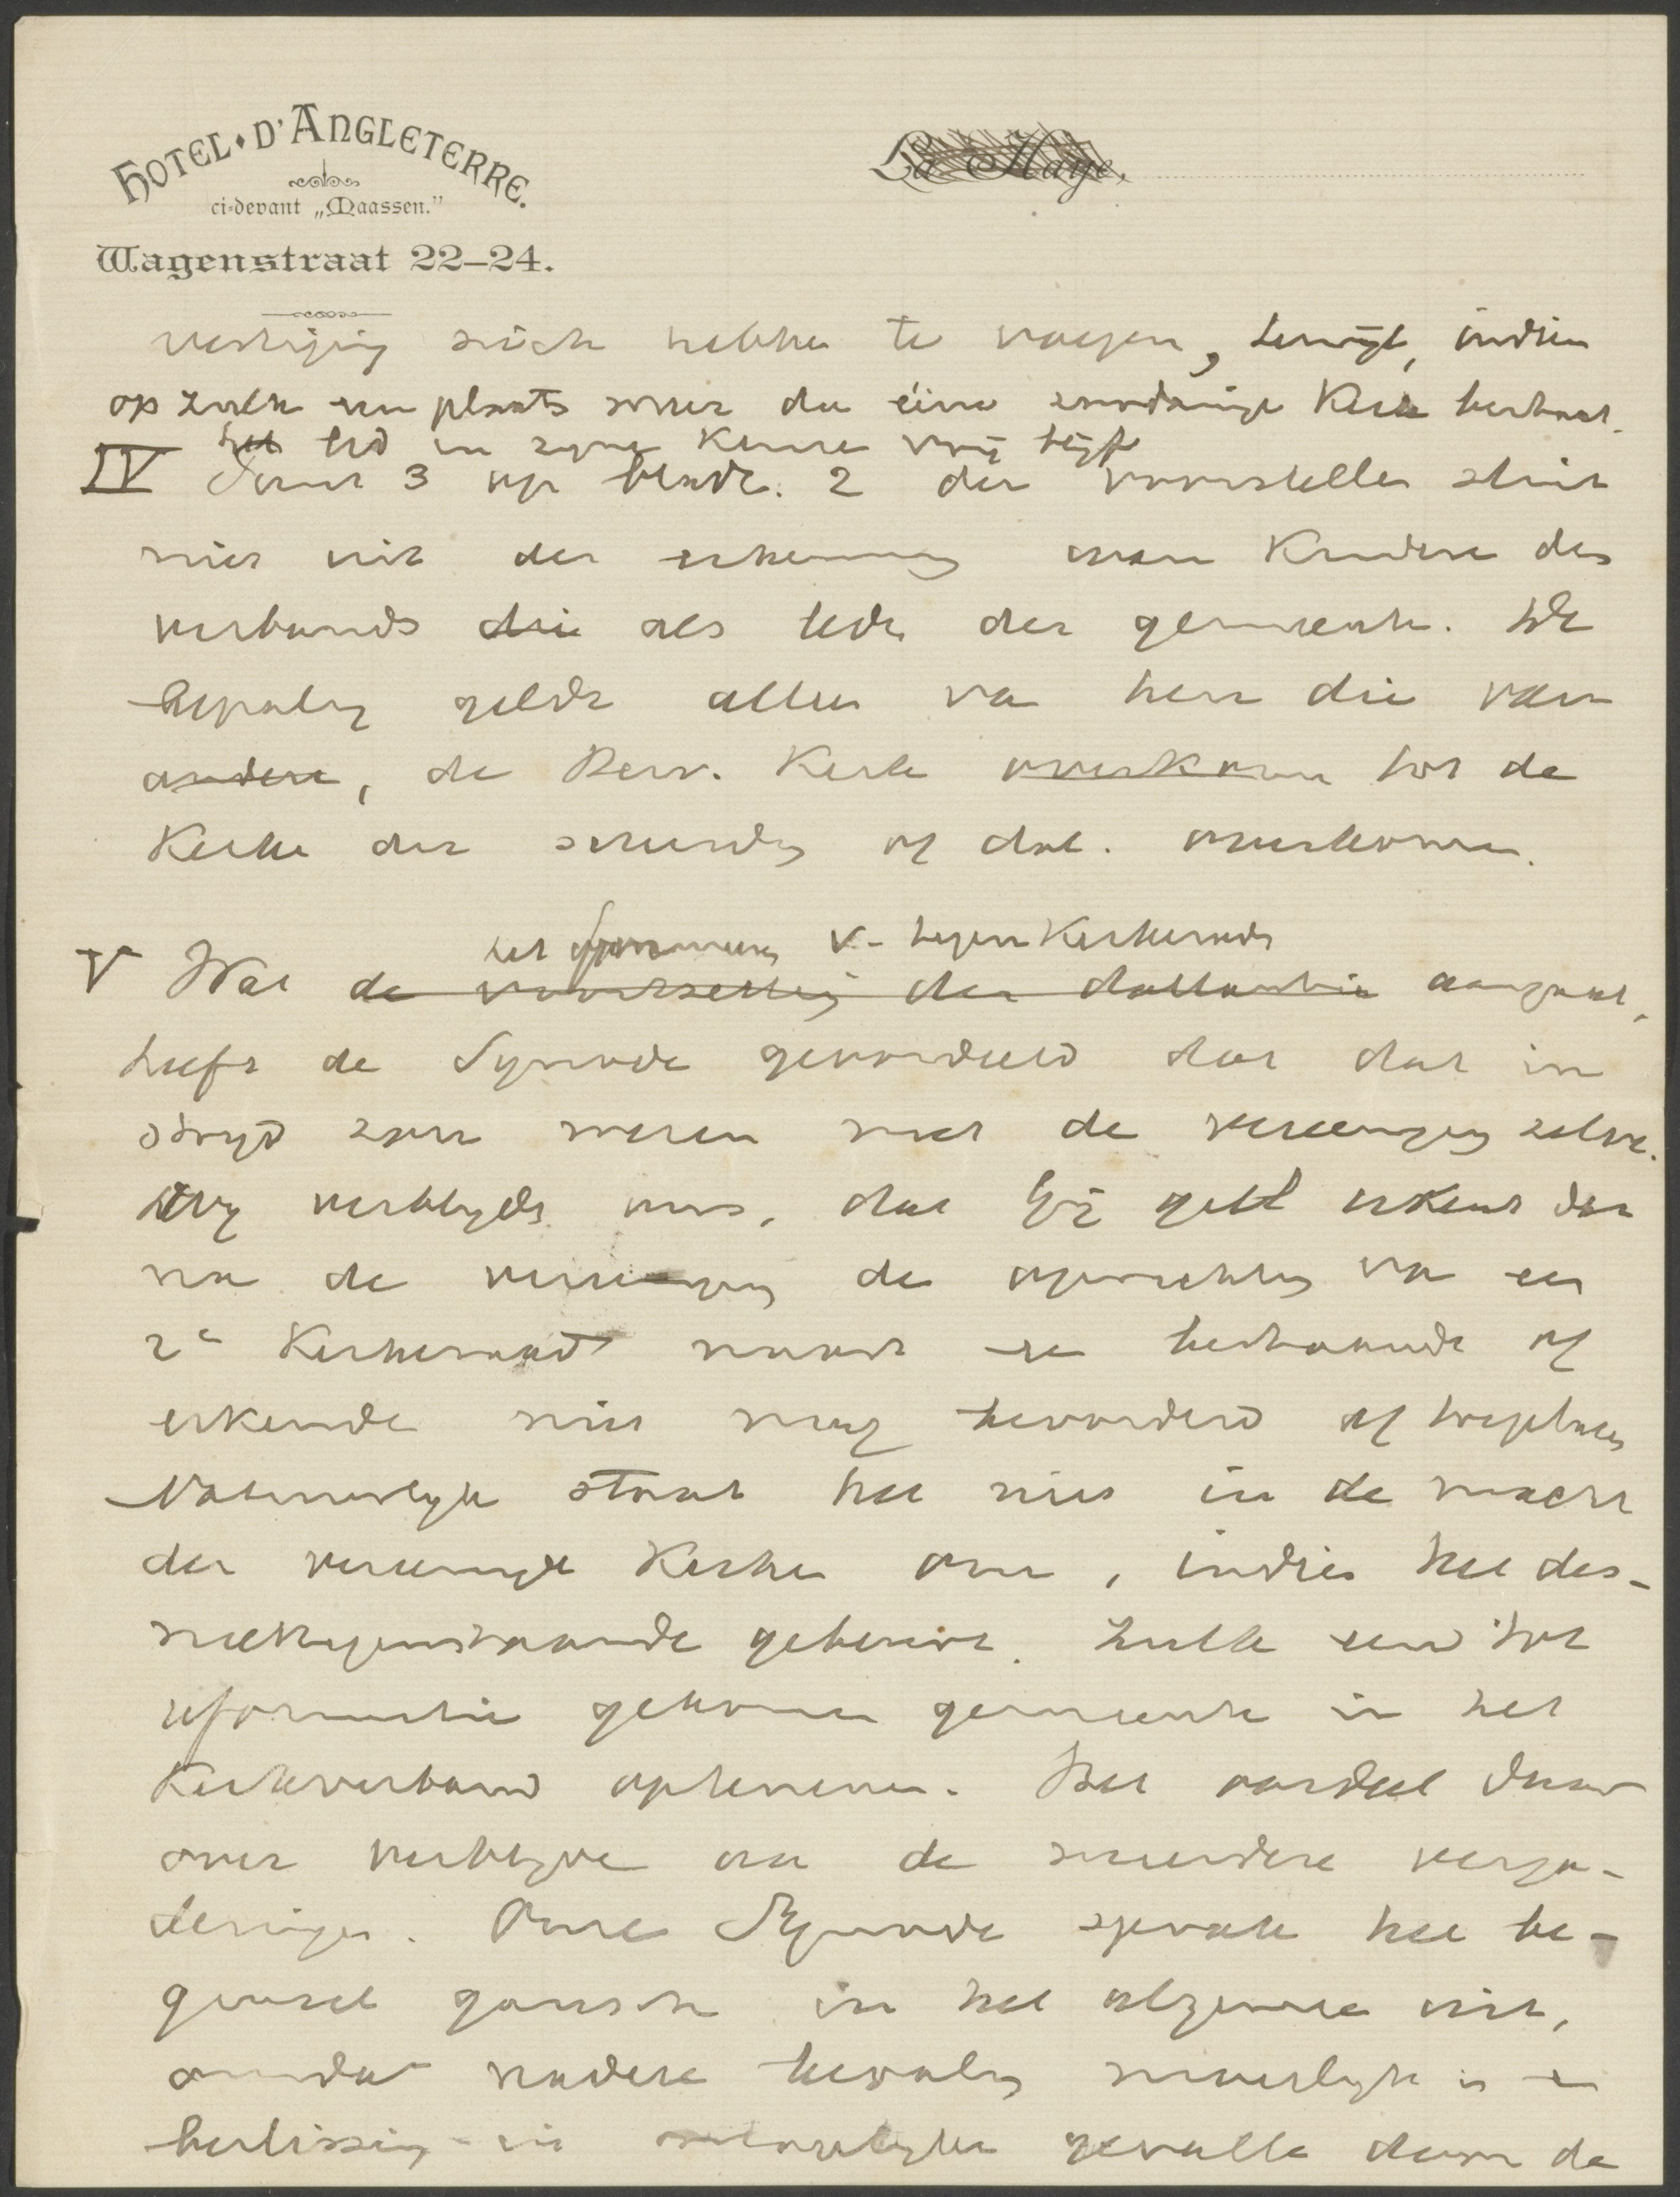 HOTEL D'ANGLETERRE.
ci-devant „Maassen."
La Haye.
Wagenstraat 22–24.
vestiging zich hebbe te voegen, terwijl, indien
op zulk een plaats meer dan eéne zoodanige Kerk bestaat.
het lid in zyne Keuze vrij blijft
IV Sub 3 op bladz. 2 der voorstellen sluit
niet uit de erkenning van Kindere des
verbonds die als leden der gemeente. De
bepaling geldt alleen van hen die van
andere, de Herv. Kerk overkomen tot de
Kerken der scheiding of dol. overkomen.
V Wat de voortzetting der doleantie aangaat,
het formeren v. tegen Kerkeraden
heeft de Synode geoordeeld dat dat in
stryd zou wezen met de vereeniging zelve.
Wy verblyden ons, dat Gij zelf erkent dat
na de vereeniging de oprichting van een
2e Kerkeraad naast een bestaande of
erkende niet mag bevorderd of toegelaten
Natuurlyk staat het niet in de macht
der vereenigde Kerken om, indien het des-
niettegenstaande gebeurt. zulk een tot
reformatie gekomen gemeente in het
Kerkverband opteneme. Het oordeel daar
over verblyve aan de meerdere verga-
deringen. Onze Synode sprak het be-
ginsel gansch in het algemeen uit,
omdat nadere bepaling moeielyk is en
beslissing in gevallen door de